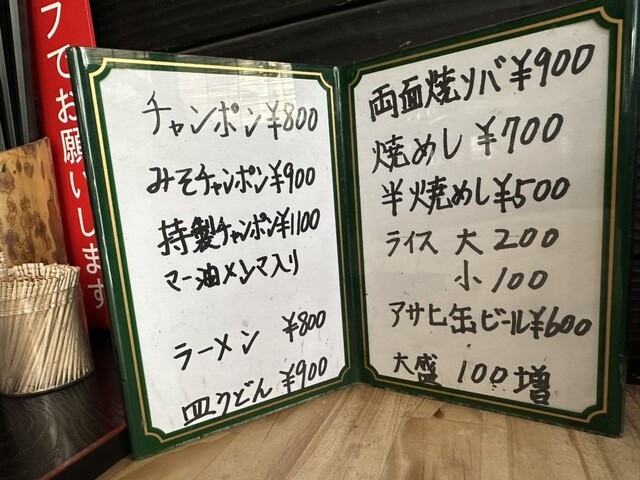 フでお願いします
チャンポン ¥800
みそチャンポン ¥900
特製チャンポン ¥1100
マー油メンマ入り
ラーメン ¥800
皿うどん ¥900
両面焼ソバ ¥900
焼めし ¥700
半焼めし ¥500
ライス 大 200
小 100
アサヒ缶ビール ¥600
大盛 100増